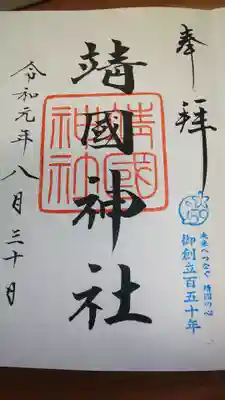 奉拝
靖國神社
靖國神社
令和元年八月三十日
150
未来へつなぐ 靖国の心
御創立百五十年